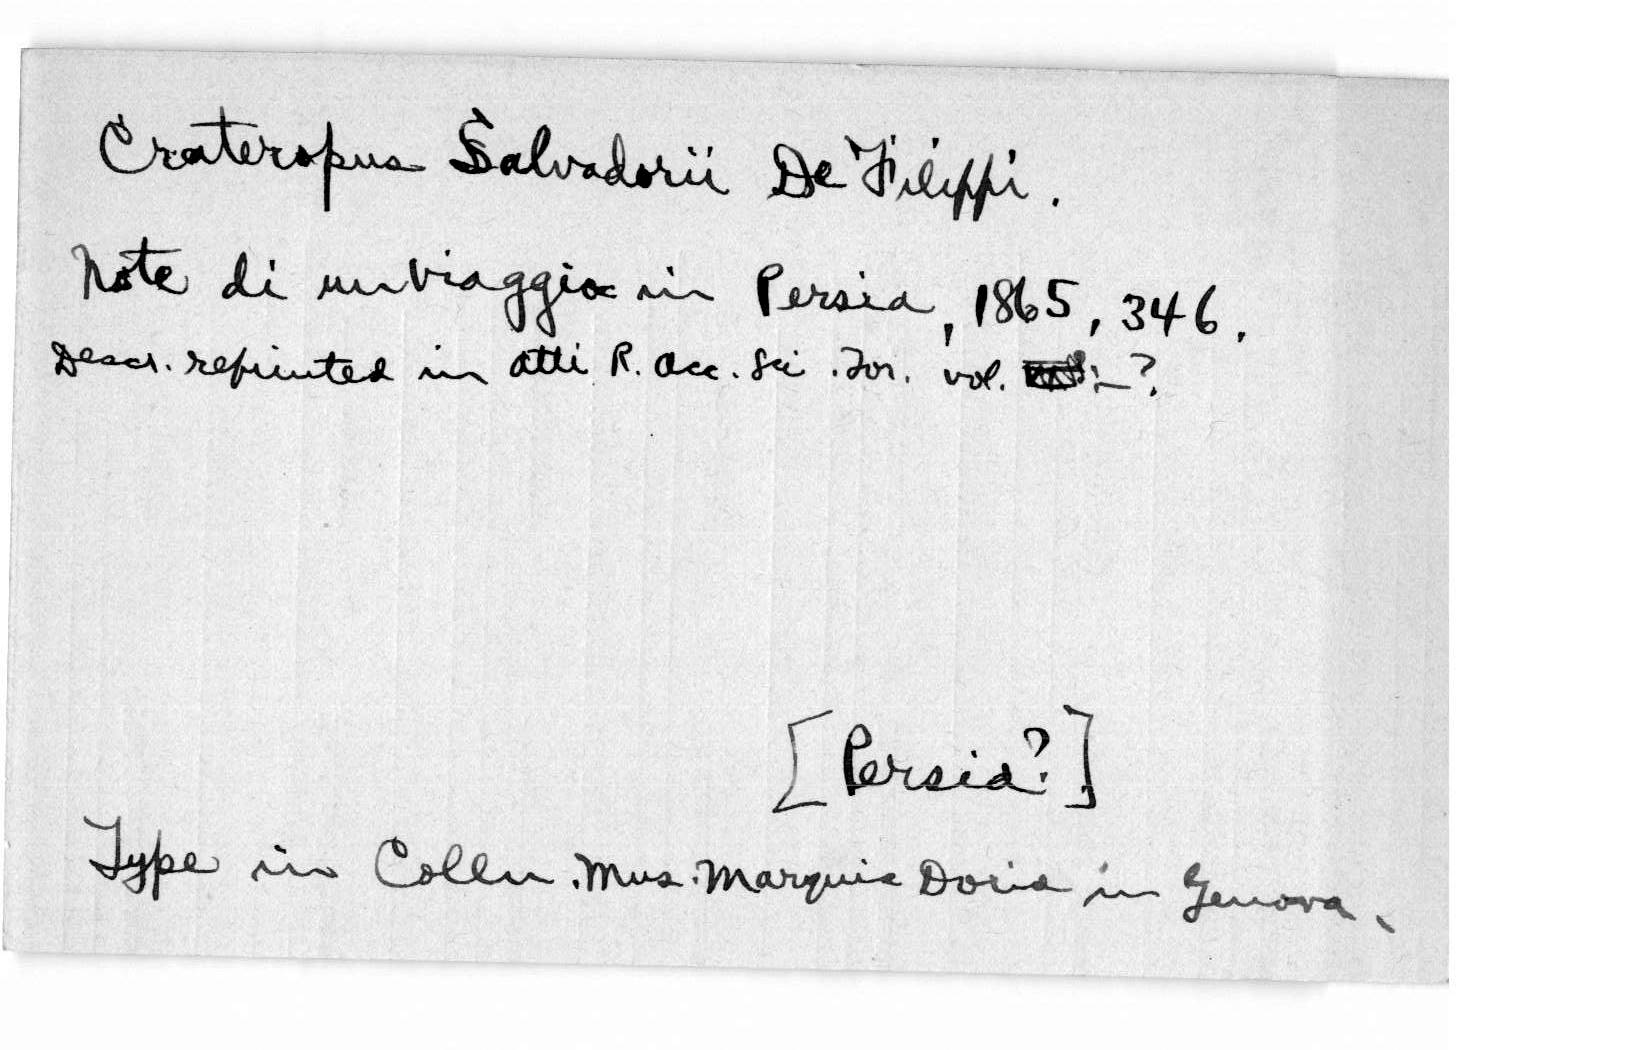 Crateropus Salvadorii De Filippi.
Note di un viaggio in Persia, 1865, 346.
Descr. reprinted in Atti R. Acc. Sci. Tor. vol. —?
[Persia?]
Type in Colln. Mus. Marquis Doria in Genova.